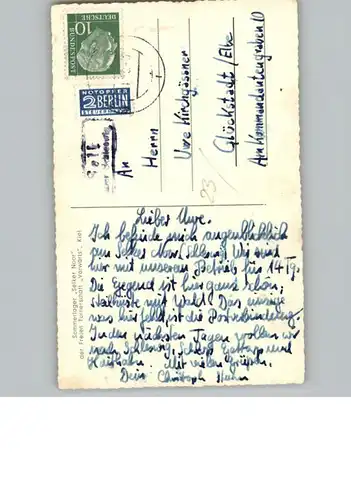 DEUTSCHE
BUNDESPOST
10
NOTOPFER
2 BERLIN
STEUERMARKE
An
Herrn
Uwe Kirchgässner
Glückstadt/Elbe
Am Kommandantengraben 10
23
Sommerlager „Selker Noor“
der Freien Turnerschaft „Vorwärts“, Kiel
Lieber Uwe.
Ich befinde mich augenblicklich
zum Selker Noor. Wir sind
hier mit unserem Betrieb für 14 Tg.
Die Gegend ist hier ganz schön,
mit Wald. Das einzige
was hier fehlt ist die Postverbindung.
In den nächsten Tagen wollen wir
nach Schleswig, Schloß Gottorp und
Haithabu. Mit vielen Grüßen
Dein Christoph Hahn